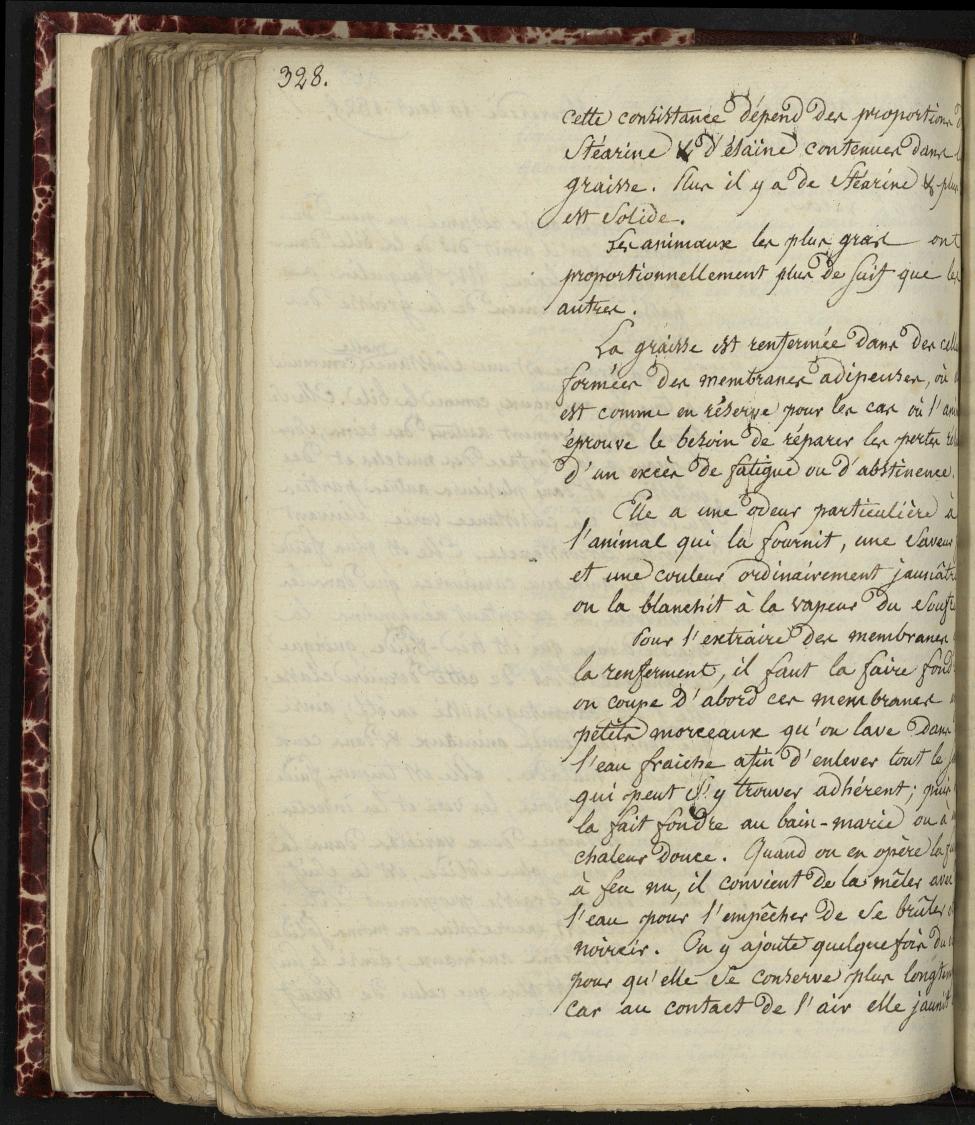 328.
cette consistance dépend des proportions d
Stéarine & d'élaïne contenues dans
graisse. Plus il y a de Stéarine & plus
est solide.
Les animaux les plus gras ont
proportionnellement plus de suif que les
autres.
La graisse est renfermée dans des cell
formées des membranes adipeuses, où
est comme en réserve pour les cas où l'ani
éprouve le besoin de réparer les pertes
d'un excès de fatigue ou d'abstinence.
Elle a une odeur particulière à
l'animal qui la fournit, une saveur
et une couleur ordinairement jaunâtre
on la blanchit à la vapeur du soufr
Pour l'extraire des membranes
la renferment, il faut la faire fond
on coupe d'abord ces membranes
petits morceaux qu'on lave dans
l'eau fraiche afin d'enlever tout le
qui peut s'y trouver adhérent; puis
la fait fondre au bain-marie ou à
chaleur douce. Quand on en opère la
à feu nu, il convient de la mêler avec
l'eau pour l'empêcher de se brûler
noircir. On y ajoute quelquefois du
pour qu'elle se conserve plus longtem
car au contact de l'air elle jaunit